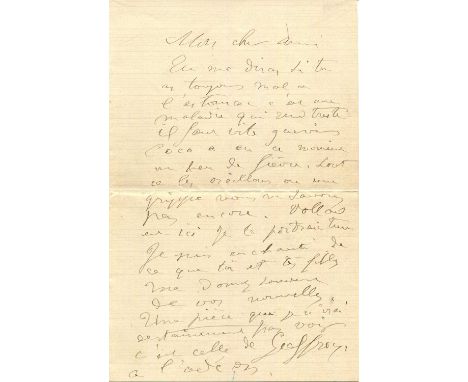 Mon cher ami
Tu me diras si tu
as toujours mal a
l'estomac c'est une
maladie qui rend triste
il faut vite guerir
Coco a en ce moment
un peu de fièvre. Sont
ce les oreillons ou une
grippe nous ne savons
pas encore. Vollard
est ici je le portraiture
Je suis enchanté de
ce que toi et tes filles
me donnez souvent
de vos nouvelles.
Une pièce que je n'irai
certainement pas voir
c'est celle de Geffroy.
a l'odeon